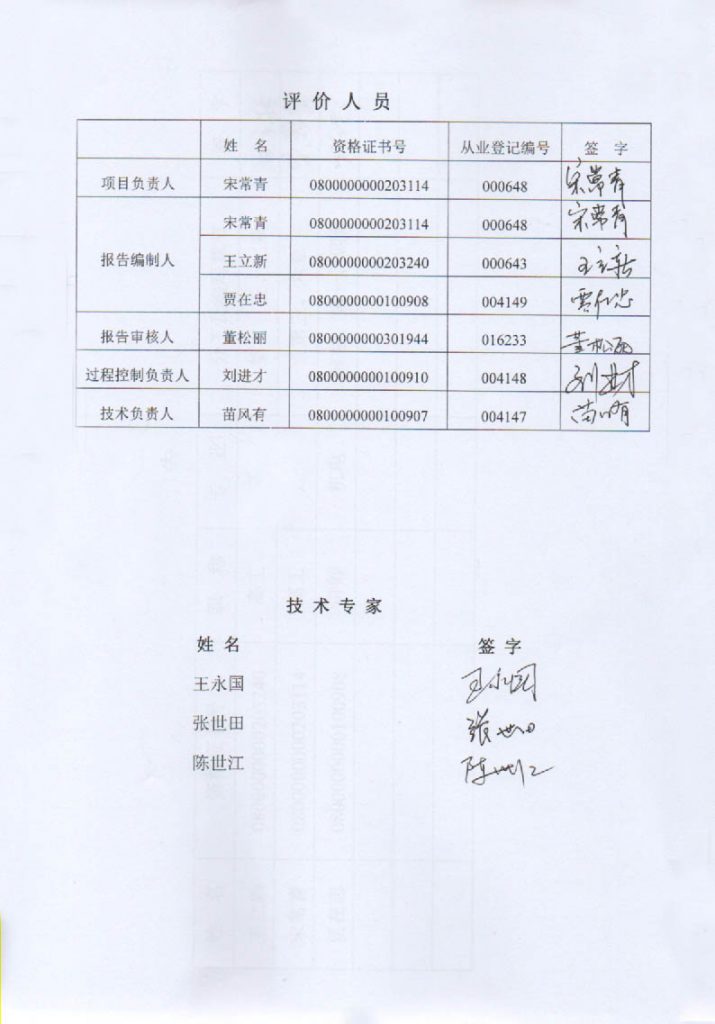 评价人员
姓 名 资格证书号 从业登记编号 签 字
项目负责人 宋常青 0800000000203114 000648 宋常青
宋常青 0800000000203114 000648 宋常青
报告编制人 王立新 0800000000203240 000643 王立新
贾在忠 0800000000100908 004149
报告审核人 董松丽 0800000000301944 016233 董松丽
过程控制负责人 刘进才 0800000000100910 004148 刘进才
技术负责人 苗风有 0800000000100907 004147
技术专家
姓 名 签 字
王永国 王永国
张世田 张世田
陈世江 陈世江